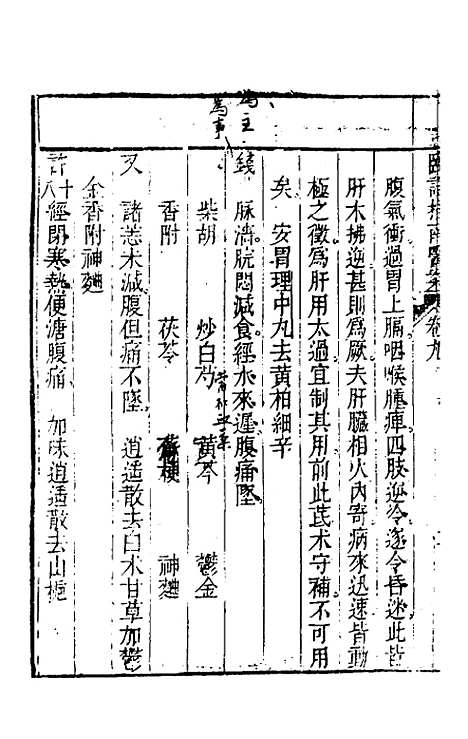 臨証指南醫案 卷九
腹氣衝過胃上膈咽喉腫痺四肢逆冷遂令昏迷此皆
肝木拂逆甚則爲厥夫肝臟相火內寄病來迅速皆動
極之徵爲肝用太過宜制其用前此茋朮守補不可用
矣 安胃理中丸去黃柏細辛
錢 脉濇脘悶減食經水來遲腹痛墜
柴胡 炒白芍 黃芩 鬱金
香附 茯苓 蘇梗 神麯
又 諸恙未減腹但痛不墜 逍遥散去白朮甘草加鬱
金香附神麯
許十八 經閉寒熱便溏腹痛 加味逍遥散去山梔
爲主
爲事